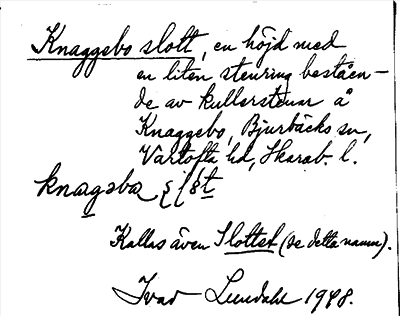 Knaggebo slott, en höjd med
en liten stenring beståen-
de av kullerstenar å
Knaggebo, Bjurbäcks sn,
Vartofta hd, Skarab. l.
knagəba
Kallas även Slottet (se detta namn).
Ivar Lundahl 1948.